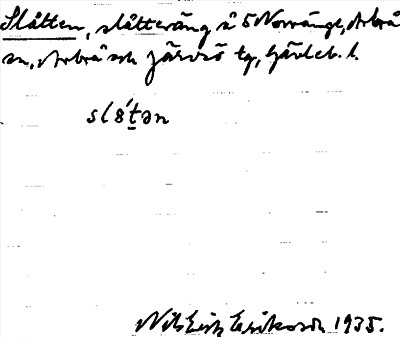 Slåtten, slåtteräng å 5 Norränge, Arbrå
sn, Arbrå och Järvsö tg, Gävleb. l.
slǻtən
Nils Erik Eriksson 1935.